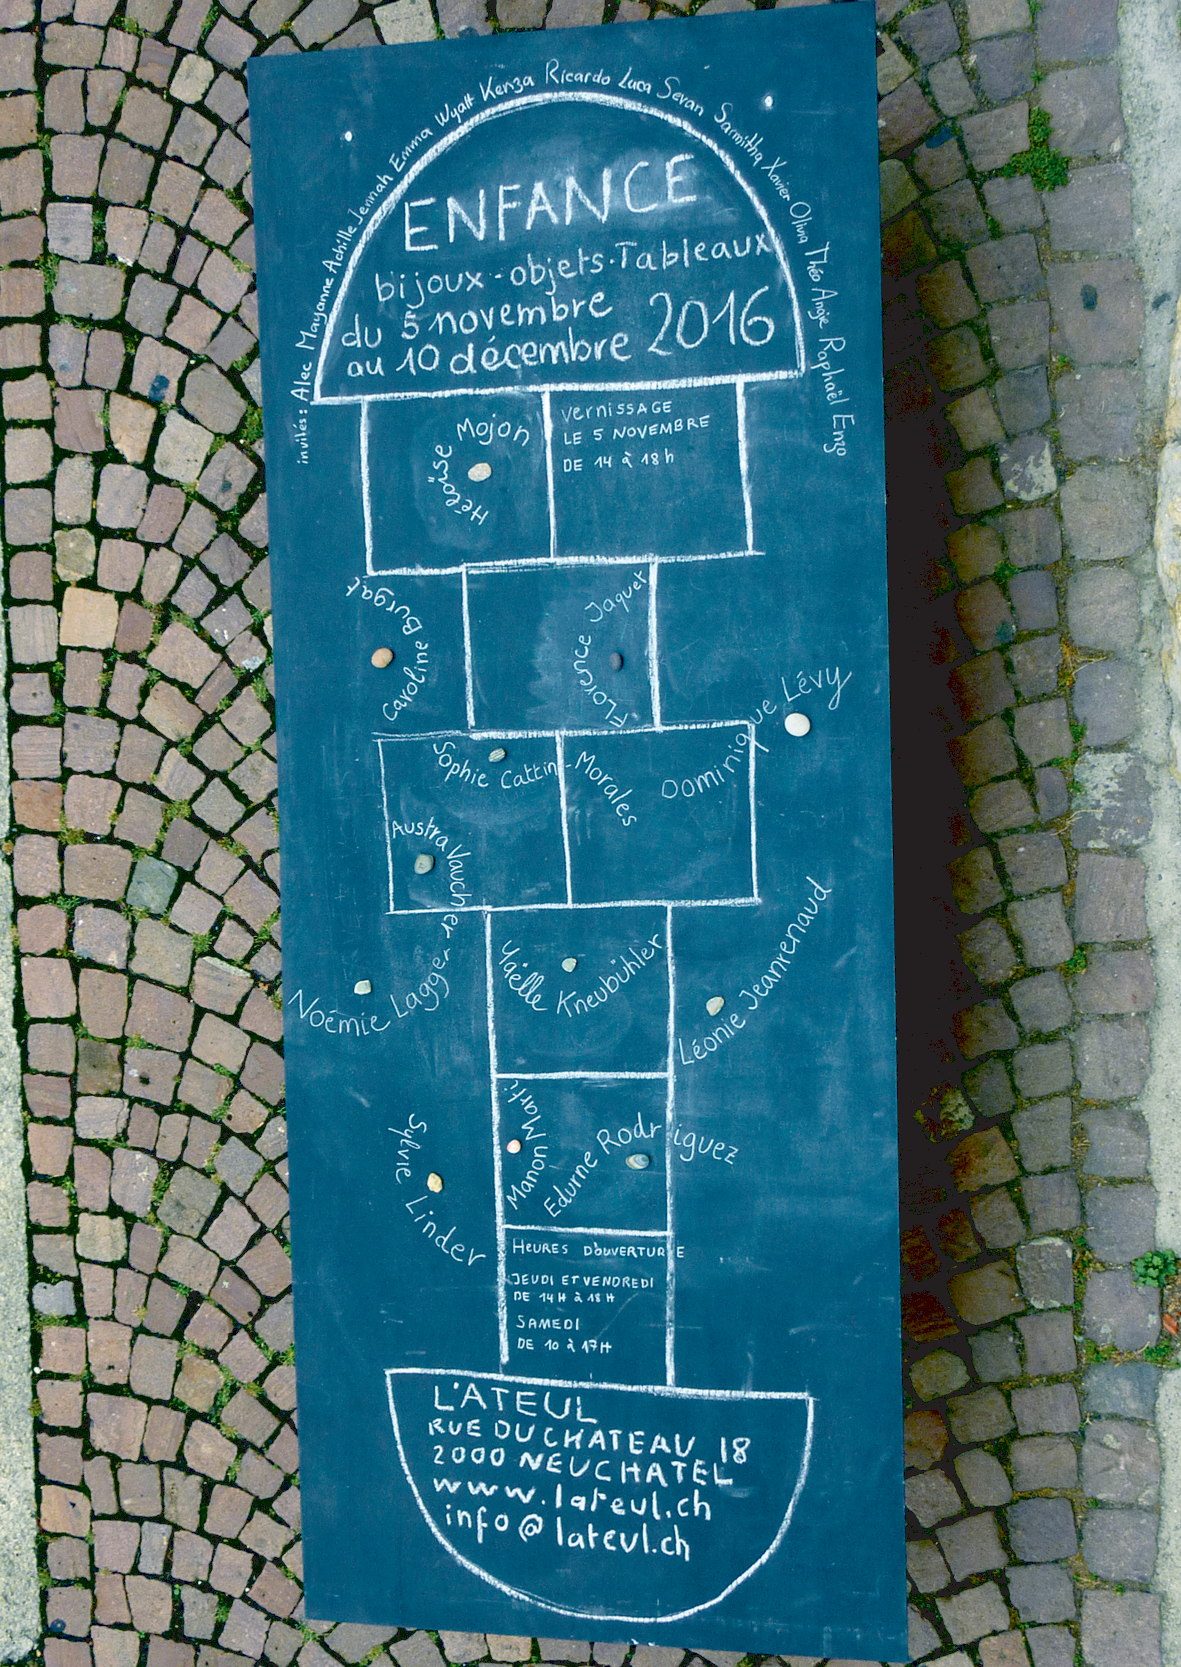 invités: Alec Mayanne Achille Jennah Emma Wyatt Kenza Ricardo Luca Sevan Sarmitha Xavier Olivia Théo Ange Raphaël Enzo
ENFANCE
bijoux-objets.Tableaux
du 5 novembre
au 10 décembre 2016
Héloïse Mojon
vernissage
LE 5 NOVEMBRE
DE 14 à 18h
Caroline Burgat
Florence Jaquet
Dominique Lévy
Sophie Cattin-Morales
Austra Vaucher
Noémie Lagger
Yaëlle Kneubühler
Léonie Jeanrenaud
Sylvie Linder
Manon Marti
Edurne Rodriguez
HEURES D'OUVERTURE
JEUDI ET VENDREDI
DE 14H à 18H
SAMEDI
DE 10 à 17H
L'ATEUL
RUE DU CHATEAU 18
2000 NEUCHATEL
www.lateul.ch
info@lateul.ch